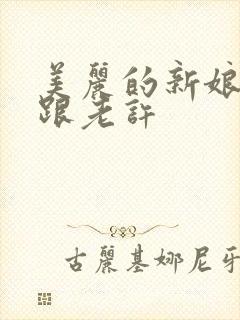 美麗的新娘
跟老許
古麗基娜尼牙